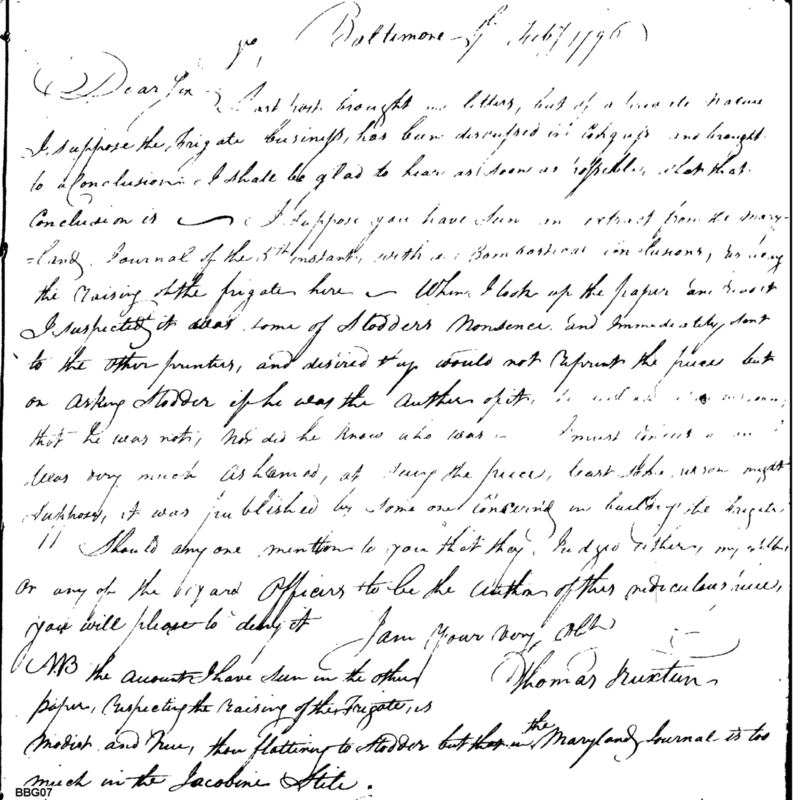 Baltimore 7th Feby 1796
Dear Sir Last post brought me letters, but of a nature
I suppose the Frigate business, has been discussed in Congress and brought
to a Conclusion I shall be glad to hear as soon as possible, what that
Conclusion is I suppose you have seen an extract from the Mary-
=land Journal of the 5th instant, with a Bombastical
the raising of the frigate here When I took up the paper and
I suspected it was some of Stodders Nonsence and Immediately, sent
to the other printers, and desired they would not reprint the piece but
on asking Stodder if he was the Auther of it,
that he was not, Nor did he know who was I must
was very much ashamed, at seeing the piece, least the might
suppose, it was published by some one Concerned in building the Frigate
Should any one mention to you that they Judged either, my self
or any of the Officers to be the Author of this rediculous piece,
you will please to deny it I am Your very Obt
NB the account I have seen in the other Thomas Truxtun
paper, Respecting the raising of the Frigate, is
Modist and True, thou flattering to Stodder but the Maryland Journal is too
much in the Jacobine Stile.
BBG07